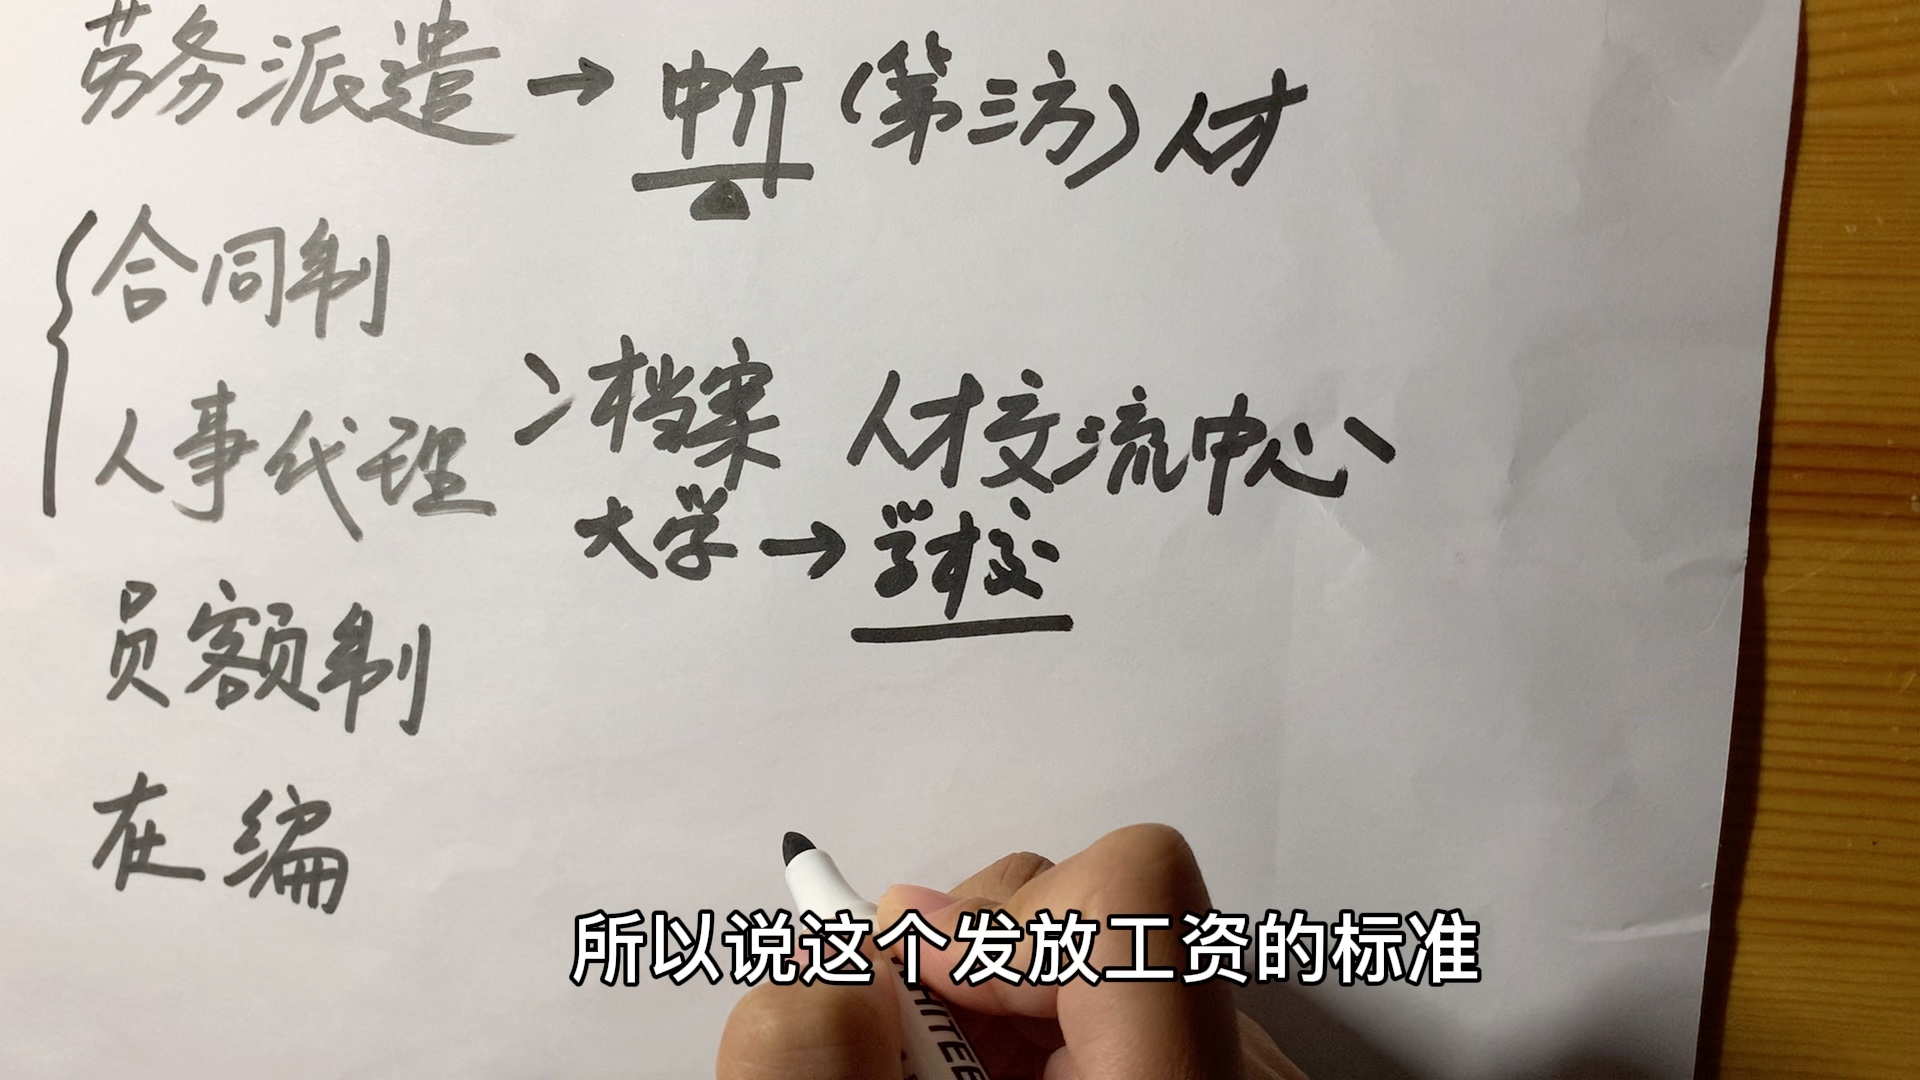 劳务派遣→中介(第三方)人才
合同制
人事代理
档案 人才交流中心
大学→学校
员额制
在编
所以说这个发放工资的标准